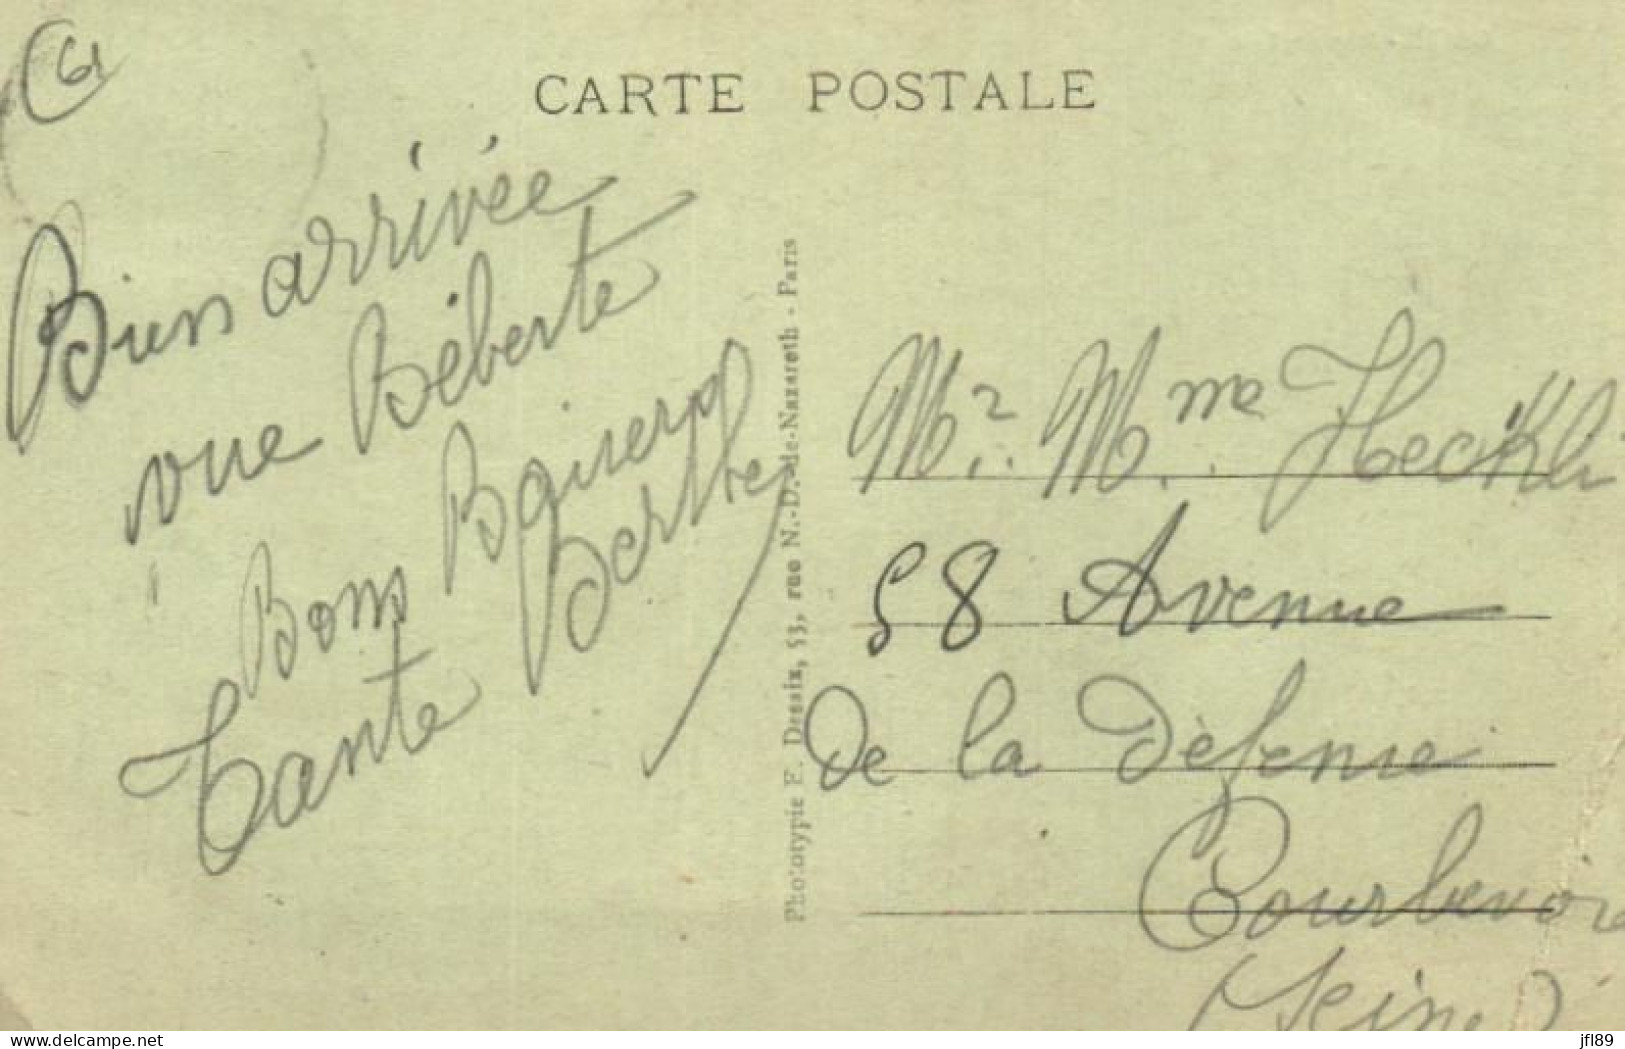 61
CARTE POSTALE
Bien arrivée
vue Béberte
Bons Baisers
Tante Berthe
Phototypie F. Dessix, 53, rue N.-D.-de-Nazareth - Paris
Mr. Mme. Heckli
58 Avenue
De la Dèfense
Courbevoie
Seine
delcampe.net
jfl89